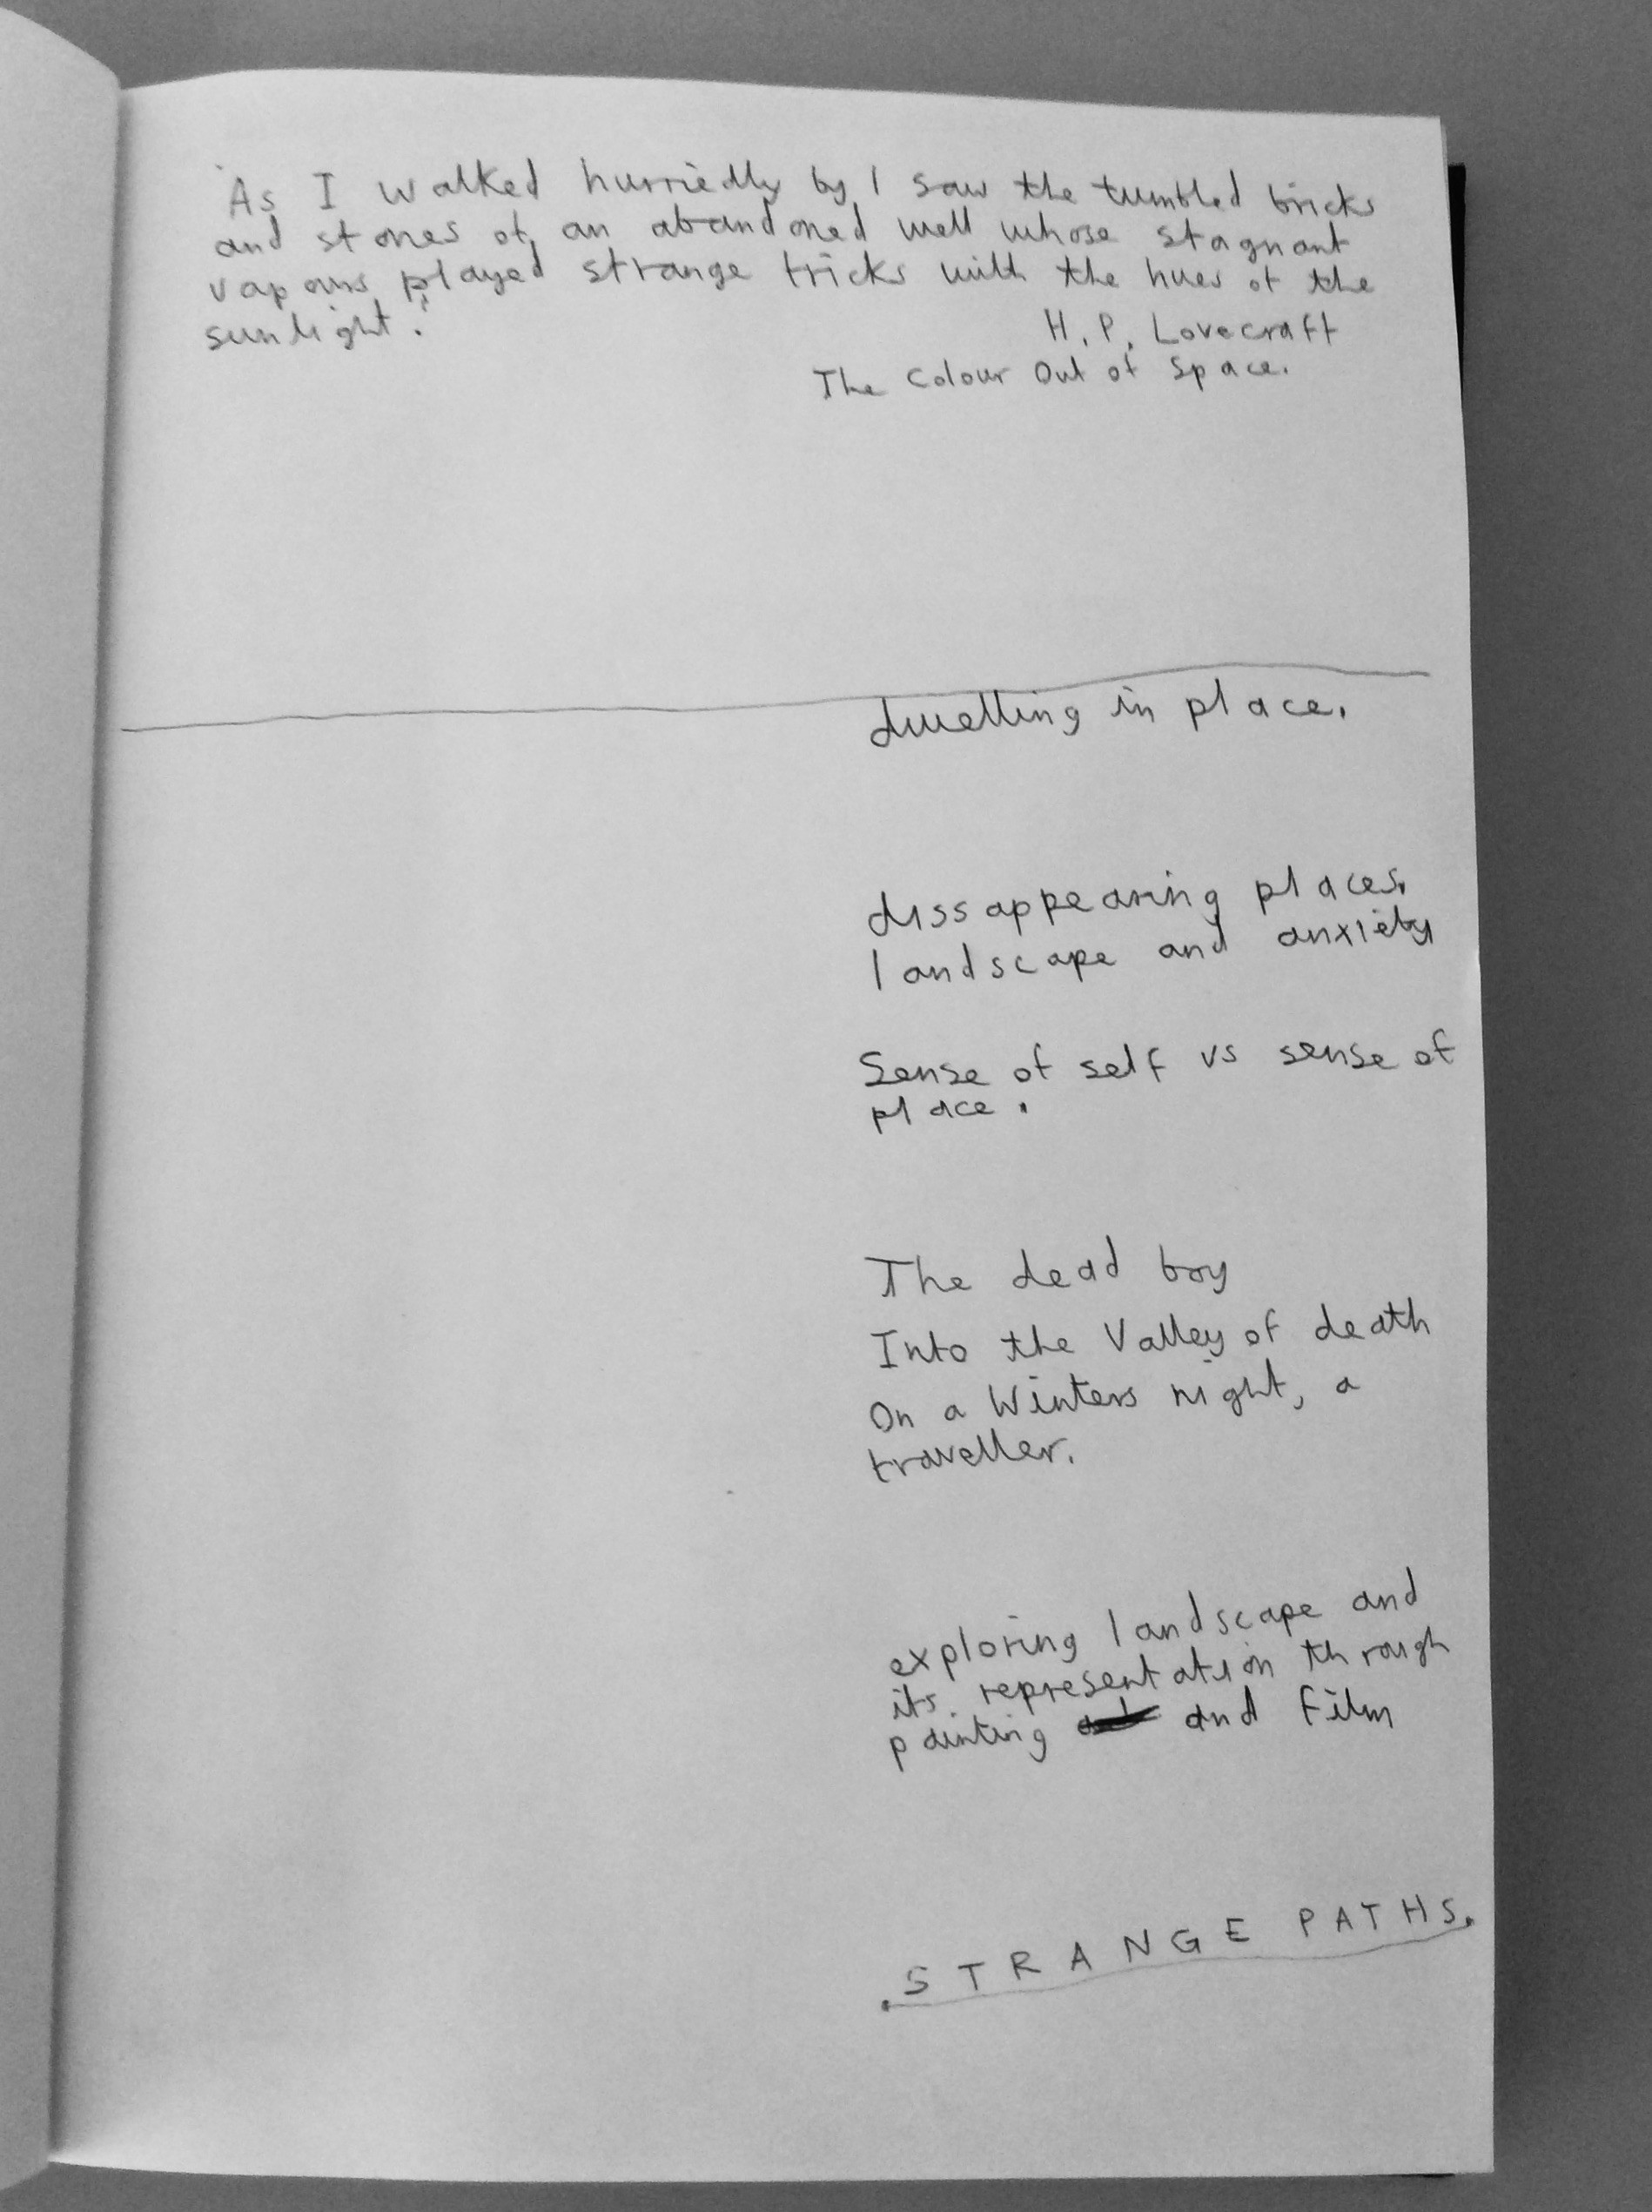 'As I walked hurriedly by I saw the tumbled bricks
and stones of an abandoned well whose stagnant
vapours played strange tricks with the hues of the
sunlight.'
H. P. Lovecraft
The Colour Out of Space.
dwelling in place.
dissappearing places.
landscape and anxiety
Sense of self vs sense of
place.
The dead boy
Into the Valley of death
On a Winters night, a
traveller.
exploring landscape and
its representation through
painting and film
.STRANGE PATHS.